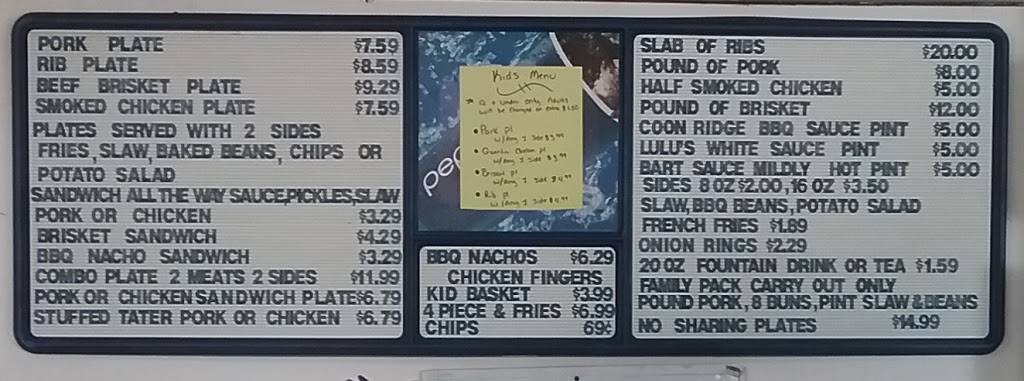 PORK PLATE $7.59
RIB PLATE $8.59
BEEF BRISKET PLATE $9.29
SMOKED CHICKEN PLATE $7.59
PLATES SERVED WITH 2 SIDES
FRIES, SLAW, BAKED BEANS, CHIPS OR
POTATO SALAD
SANDWICH ALL THE WAY SAUCE,PICKLES,SLAW
PORK OR CHICKEN $3.29
BRISKET SANDWICH $4.29
BBQ NACHO SANDWICH $3.29
COMBO PLATE 2 MEATS 2 SIDES $11.99
PORK OR CHICKEN SANDWICH PLATE $6.79
STUFFED TATER PORK OR CHICKEN $6.79
Kids Menu
12 & Under Only. Adults
will be charged an extra $1.50
Pork pl
w/Any 1 Side $3.99
pl
w/Any 1 Side $3.99
pl
w/Any 1 Side $4.99
Rib pl
w/Any 1 Side $4.99
pep
BBQ NACHOS $6.29
CHICKEN FINGERS
KID BASKET $3.99
4 PIECE & FRIES $6.99
CHIPS 69¢
SLAB OF RIBS $20.00
POUND OF PORK $8.00
HALF SMOKED CHICKEN $5.00
POUND OF BRISKET $12.00
COON RIDGE BBQ SAUCE PINT $5.00
LULU'S WHITE SAUCE PINT $5.00
BART SAUCE MILDLY HOT PINT $5.00
SIDES 8 OZ $2.00, 16 OZ $3.50
SLAW, BBQ BEANS, POTATO SALAD
FRENCH FRIES $1.89
ONION RINGS $2.29
20 OZ FOUNTAIN DRINK OR TEA $1.59
FAMILY PACK CARRY OUT ONLY
POUND PORK, 8 BUNS, PINT SLAW & BEANS
NO SHARING PLATES $14.99